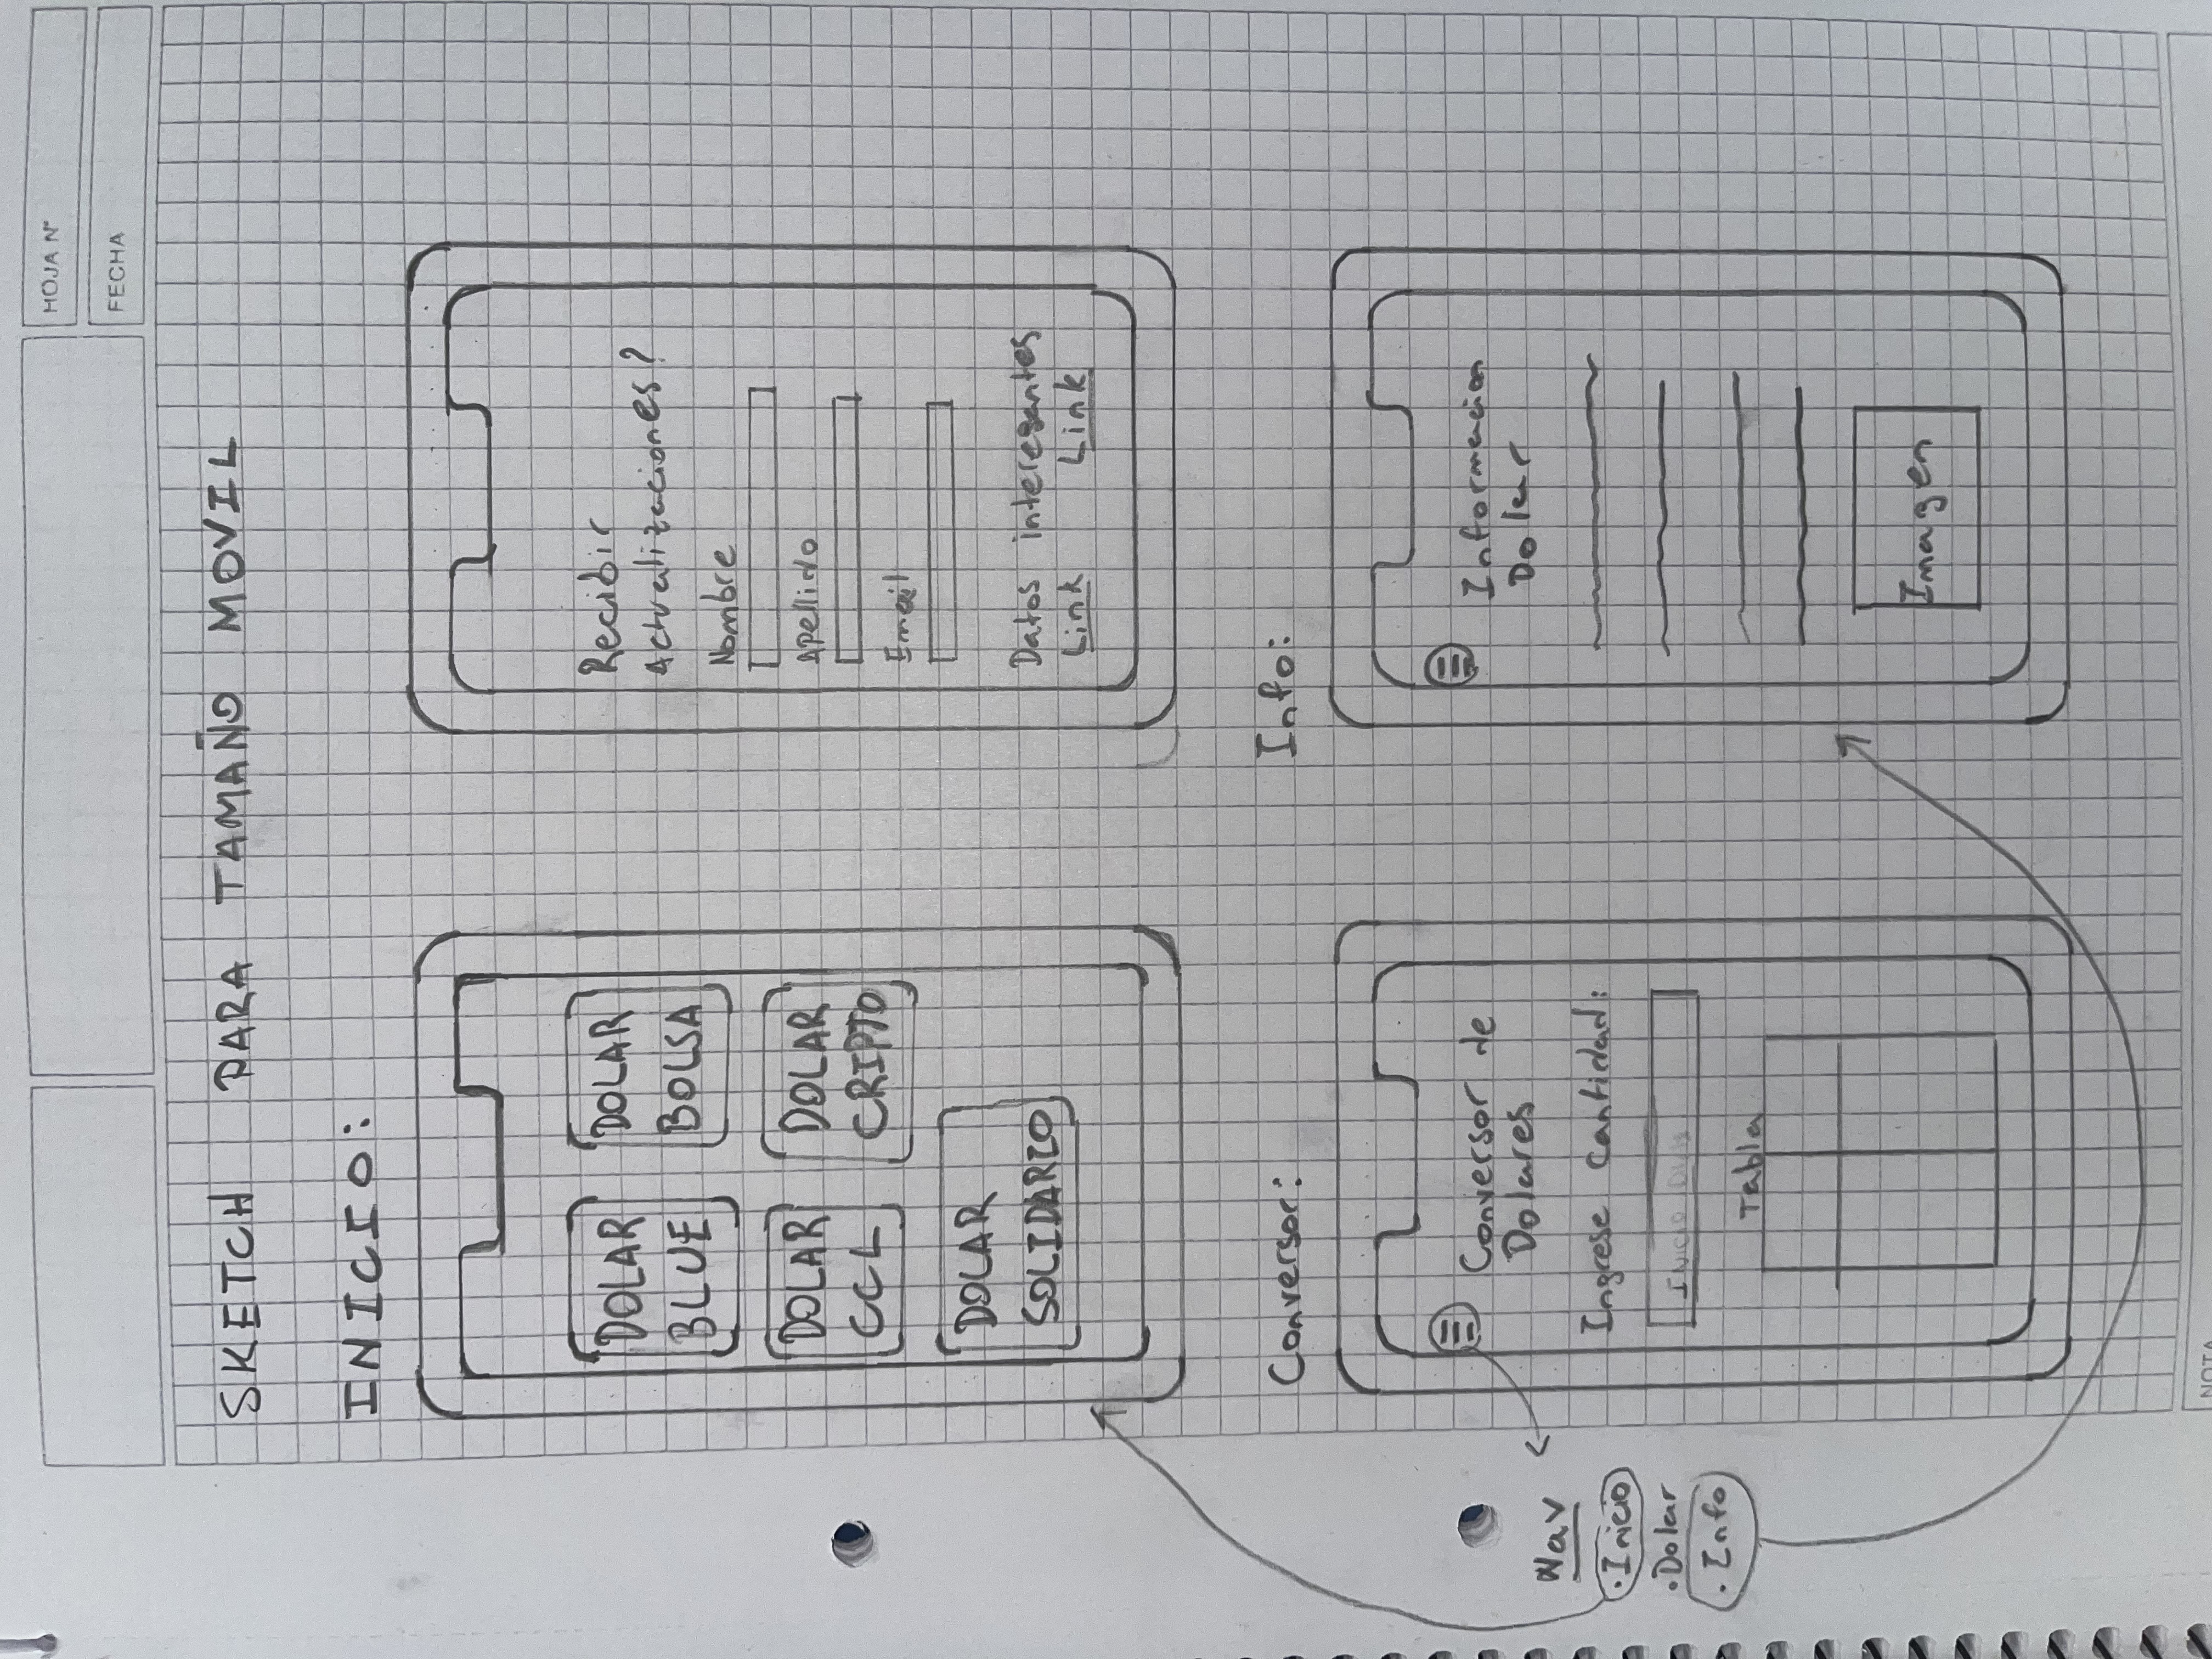 HOJA N°
FECHA
SKETCH PARA TAMAÑO MOVIL
INICIO:
DOLAR
BLUE
DOLAR
BOLSA
DOLAR
CCL
DOLAR
CRIPTO
DOLAR
SOLIDARIO
Recibir
Actualizaciones?
Nombre
Apellido
Email
Datos interesantes
Link Link
Conversor:
Conversor de
Dolares
Ingrese Cantidad:
Inicio
Tabla
Nav
·Inicio
·Dolar
·Info
Info:
Informacion
Dolar
Imagen
NOTA